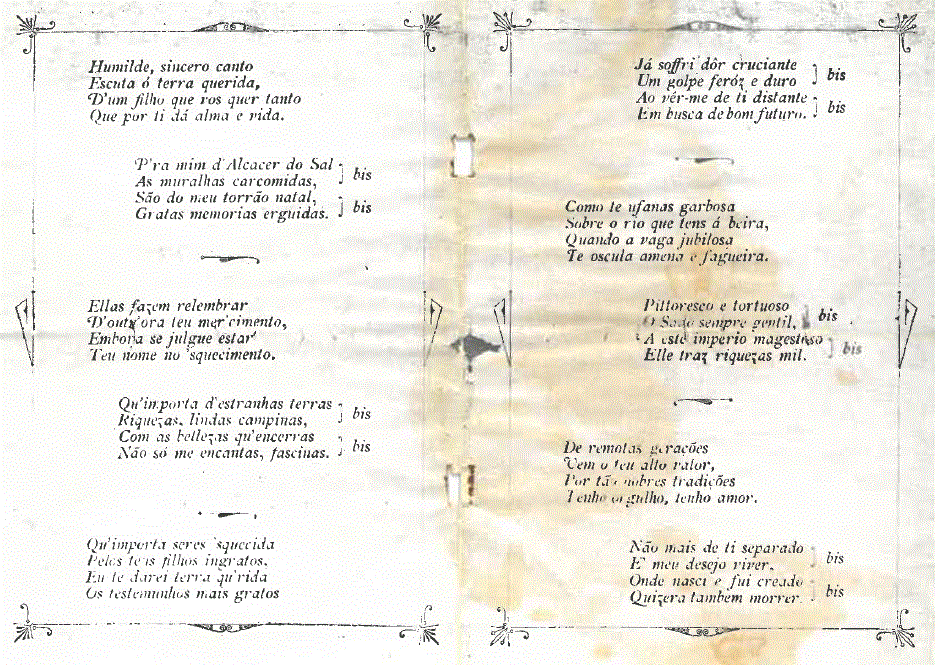 Humilde, sincero canto
Escuta ó terra querida,
D'um filho que vos quer tanto
Que por ti dá alma e vida.
P'ra mim d'Alcacer do Sal
As muralhas carcomidas, bis
São do meu torrão natal,
Gratas memorias erguidas. bis
Ellas fazem relembrar
D'outr'ora teu mer'cimento,
Embora se julgue estar
Teu nome no 'squecimento.
Qu'importa d'estranhas terras
Riquezas, lindas campinas, bis
Com as bellezas qu'encerras
Não só me encantas, fascinas. bis
Qu'importa seres 'squecida
Pelos teus filhos ingratos,
Eu te darei terra qu'rida
Os testemunhos mais gratos
Já soffri dôr cruciante
Um golpe feróz e duro bis
Ao vêr-me de ti distante
Em busca de bom futuro. bis
Como te ufanas garbosa
Sobre o rio que tens á beira,
Quando a vaga jubilosa
Te oscula amena e fagueira.
Pittoresco e tortuoso
O Sado sempre gentil, bis
A este imperio magestoso
Elle traz riquezas mil. bis
De remotas gerações
Vem o teu alto valor,
Por tão nobres tradições
Tenho orgulho, tenho amor.
Não mais de ti separado
E' meu desejo viver, bis
Onde nasci e fui creado
Quizera tambem morrer. bis